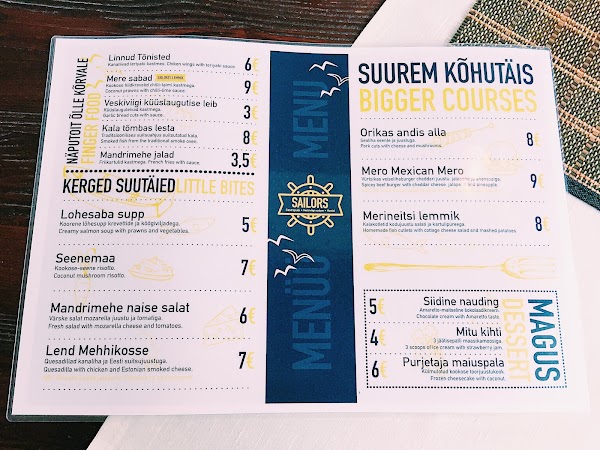 NÄPUTOIT ÕLLE KÕRVALE
FINGER FOOD
Linnud Tõnisted 6€
Kanatiivad teriyaki kastmes. Chicken wings with teriyaki sauce.
Mere sabad SAILORS LEMMIK 9€
Coconut prawns with chilli-lime sauce.
Veskiviigi küüslaugutise leib 3€
Küüslauguleivad kastmega.
Garlic bread cuts with sauce.
Kala tõmbas lesta 8€
Traditsioonilises suitsuahjus suitsutatud kala.
Smoked fish from the traditional smoke oven.
Mandrimehe jalad 3,5€
Friikartulid kastmega. French fries with sauce.
KERGED SUUTÄIED LITTLE BITES
Lohesaba supp 5€
Koorene lõhesupp krevettide ja köögiviljadega.
Creamy salmon soup with prawns and vegetables.
Seenemaa 7€
Kookose-seene risotto.
Coconut mushroom risotto.
Mandrimehe naise salat 6€
Värske salat mozarella juustu ja tomatiga.
Fresh salad with mozarella cheese and tomatoes.
Lend Mehhikosse 7€
Quesadillad kanaliha ja Eesti suitsujuustuga.
Quesadilla with chicken and Estonian smoked cheese.
MENÜÜ MENU
SAILORS
SUUREM KÕHUTÄIS
BIGGER COURSES
Orikas andis alla 8€
Sealiha seente ja juustuga.
Pork cuts with cheese and mushrooms.
Mero Mexican Mero 9€
Spicy beef burger with cheddar cheese, and pineapple.
Merineitsi lemmik 8€
Kalakotletid kodujuustu salati ja kartulipurega.
Homemade fish cutlets with cottage cheese salad and mashed potatoes.
MAGUS
DESSERT
5€ Siidine nauding
Amaretto-maitseline šokolaadikreem.
Chocolate cream with Amaretto taste.
4€ Mitu kihti
3 jäätisepalli maasikamoosiga.
3 scoops of ice cream with strawberry jam.
6€ Purjetaja maiuspala
Külmutatud kookose toorjuustukook.
Frozen cheesecake with coconut.